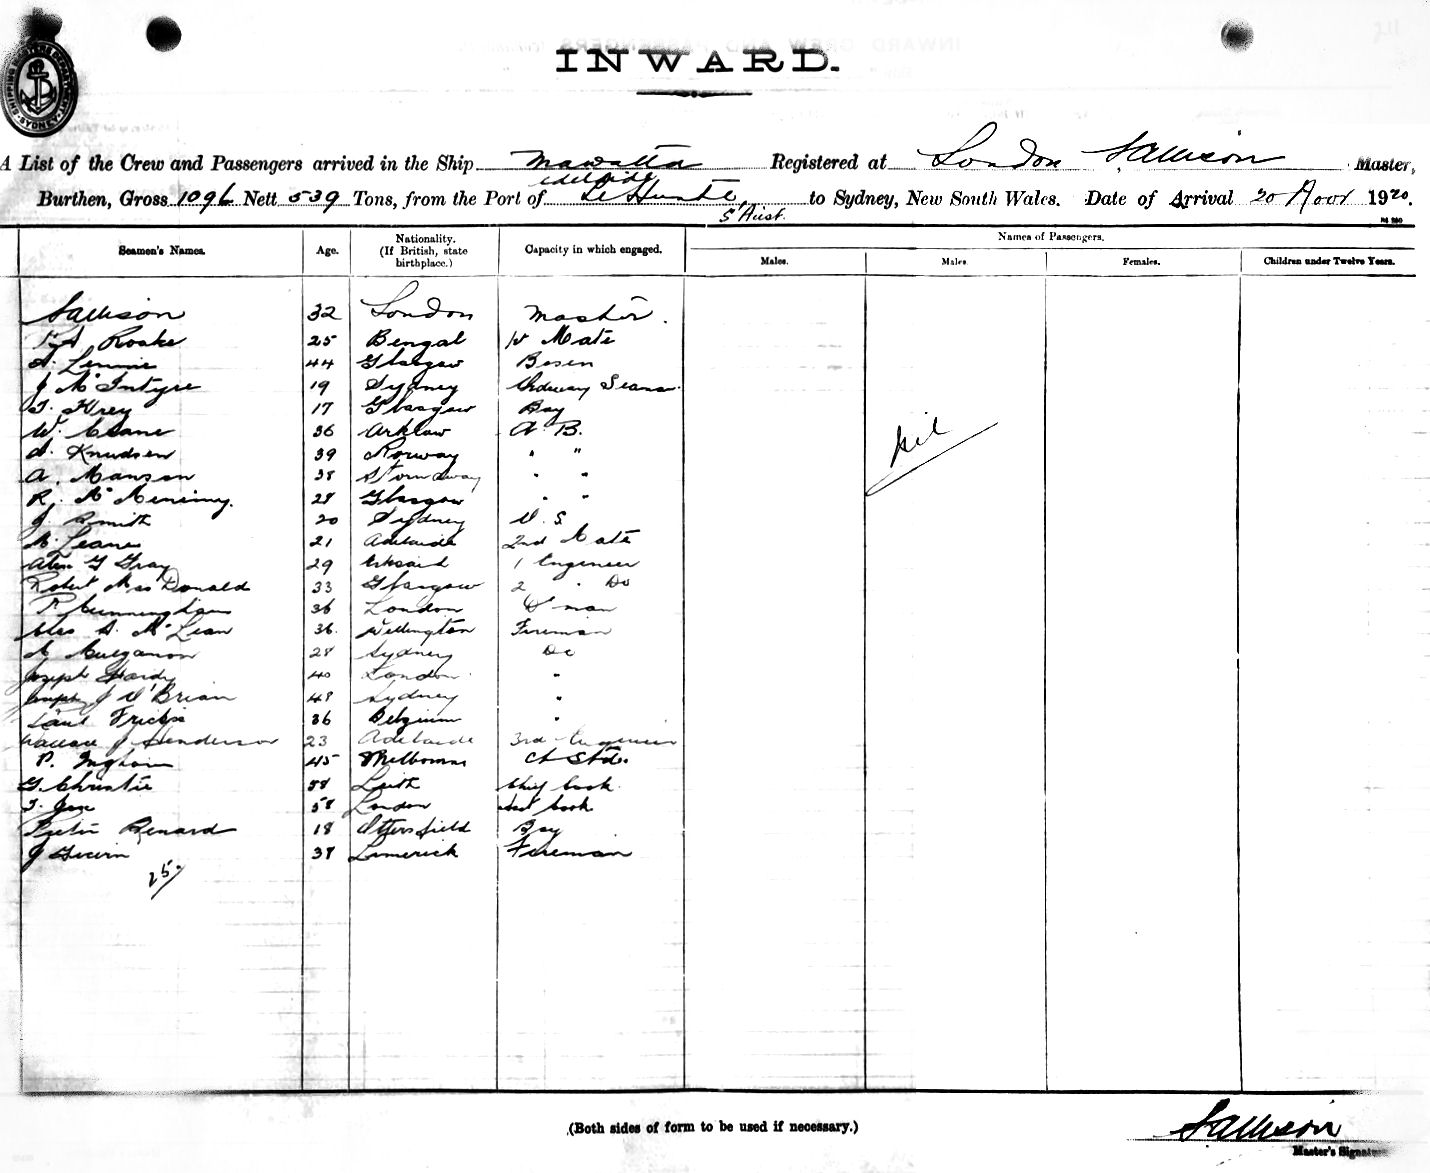 INWARD.
A List of the Crew and Passengers arrived in the Ship Mawatta Registered at London S Allison Master,
Adelaide
Burthen, Gross 1096 Nett 539 Tons, from the Port of Le Hunte to Sydney, New South Wales. Date of Arrival 20 Novr 1920.
S Aust.
Names of Passengers.
Seamen's Names. Age. Nationality. (If British, state birthplace.) Capacity in which engaged. Males. Males. Females. Children under Twelve Years.
S Allison 32 London Master.
Roake 25 Bengal Mate
A. Lennie 44 Glasgow Bosen
J McIntyre 19 Sydney Seaman
T. Krey 17 Glasgow Boy
W. Crane 36 Arklow A. B.
A. Knudsen 39 Norway " "
A. Manson 38 Stornoway " "
R. Mc Menemy. 28 Glasgow " "
J. Smith 20 Sydney O. S
Leane 21 Adelaide 2nd Mate
G Gray 29 1 Engineer
Robert MacDonald 33 Glasgow 2 " Do
P Cunningham 36 London D'man
A. McLean 36. Wellington Fireman
28 Sydney Do
Joseph Hardy 40 London "
Joseph J O'Brian 48 Sydney "
Paul 36 Belgium "
Wallace J Henderson 23 Adelaide 3rd Engineer
P. Ingham 45 Melbourne Ch Std.
G. Christie 58 Leith Chief Cook
58 London Cook
Renard 18 Boy
J 38 Limerick Fireman
25
Nil
(Both sides of form to be used if necessary.)
S Allison
Master's Signature